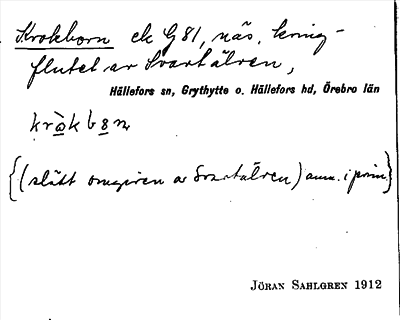 Krokborn ek G 81, näs, kring-
flutet av Svartälven,
Hällefors sn, Grythytte o. Hällefors hd, Örebro län
{(slätt omgiven av Svartälven) anm. i prim.}
JÖRAN SAHLGREN 1912